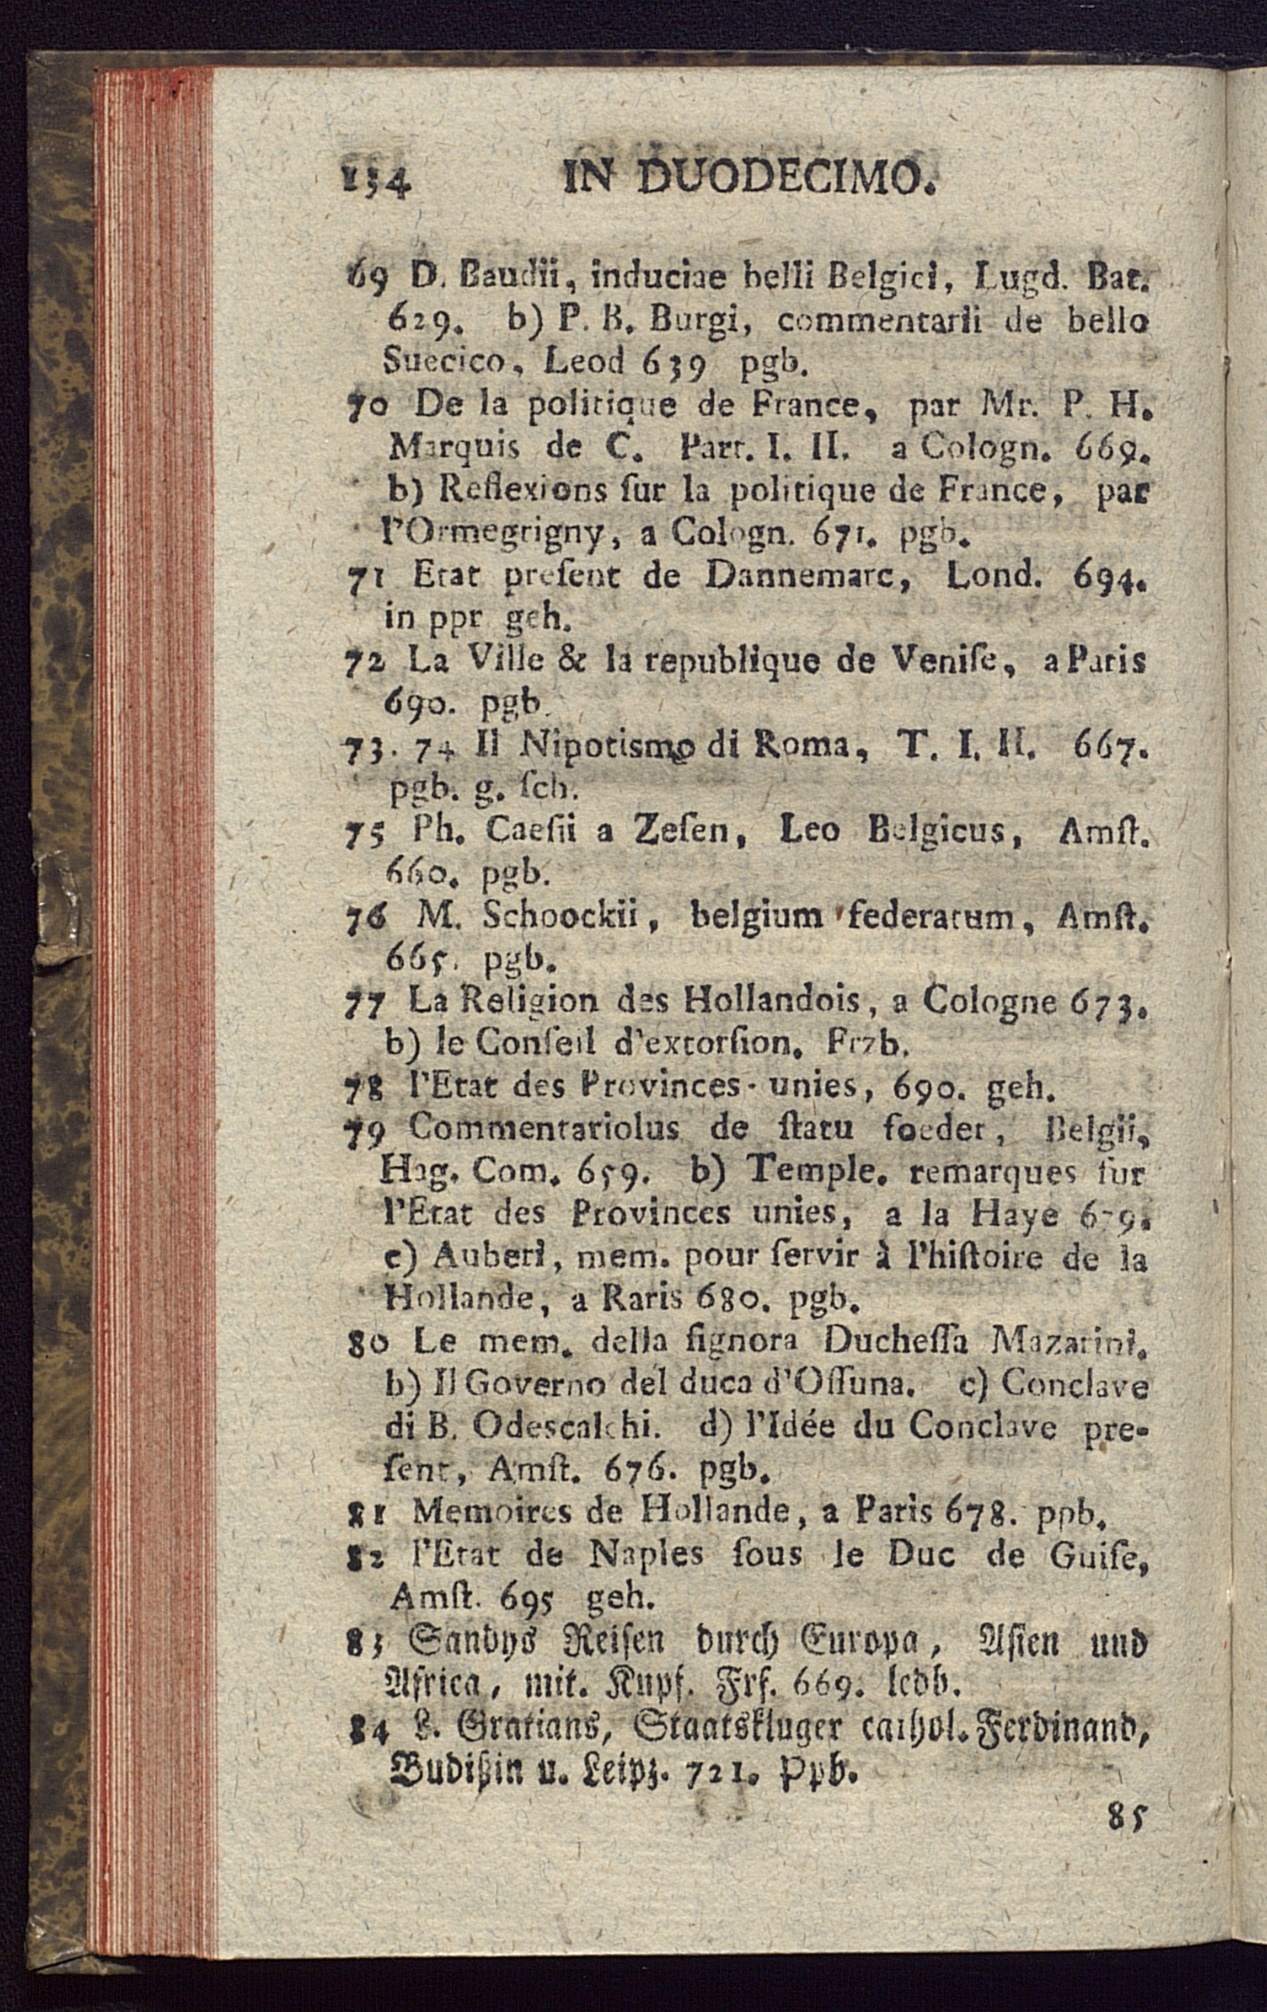 134 IN DUODECIMO.
69 D. Baudii, induciae belli Belgici, Lugd. Bat.
629. b) P. B. Burgi, commentarii de bello
Suecico, Leod 639 pgb.
70 De la politique de France, par Mr. P. H.
Marquis de C. Part. I. II. a Cologn. 669.
b) Reflexions ſur la politique de France, par
l'Ormegrigny, a Cologn. 671. pgb.
71 Etat preſent de Dannemarc, Lond. 694.
in ppr geh.
72 La Ville & la republique de Veniſe, a Paris
690. pgb.
73. 74 Il Nipotismo di Roma, T. I. II. 667.
pgb. g. ſch.
75 Ph. Caeſii a Zeſen, Leo Belgicus, Amſt.
660. pgb.
76 M. Schoockii, belgium federatum, Amſt.
665. pgb.
77 La Religion des Hollandois, a Cologne 673.
b) le Conſeil d'extorſion. Frzb.
78 l'Etat des Provinces-unies, 690. geh.
79 Commentariolus de ſtatu foeder, Belgii,
Hag. Com. 659. b) Temple. remarques ſur
l'Etat des Provinces unies, a la Haye 679.
c) Auberi, mem. pour ſervir à l'hiſtoire de la
Hollande, a Raris 680. pgb.
80 Le mem. della ſignora Ducheſſa Mazarini.
b) Il Governo del duca d'Oſſuna. c) Conclave
di B. Odescalchi. d) l'Idée du Conclave pre-
ſent, Amſt. 676. pgb.
81 Memoires de Hollande, a Paris 678. ppb.
82 l'Etat de Naples ſous le Duc de Guiſe,
Amſt. 695 geh.
83 Sandys Reiſen durch Europa, Aſien und
Africa, mit. Kupf. Frf. 669. ledb.
84 L. Gratians, Staatskluger cathol. Ferdinand,
Budißin u. Leipz. 721. Ppb.
85